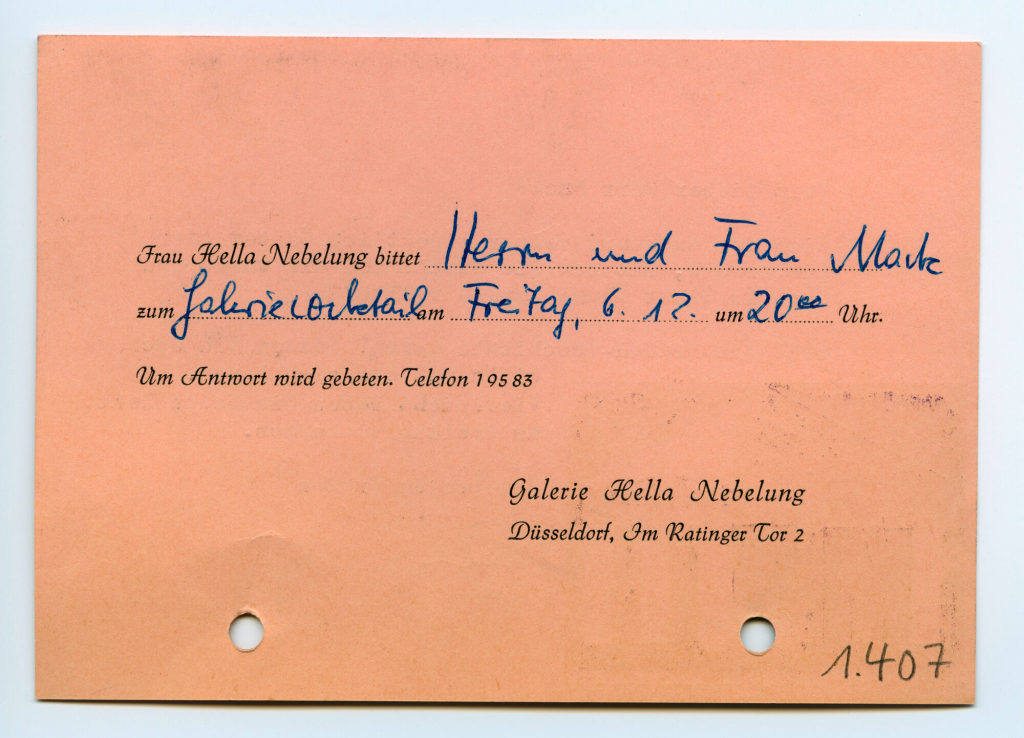 Frau Hella Nebelung bittet Herrn und Frau Mack
zum Galeriecocktail am Freitag, 6. 12. um 20 00 Uhr.
Um Antwort wird gebeten. Telefon 19583
Galerie Hella Nebelung
Düsseldorf, Im Ratinger Tor 2
1.407